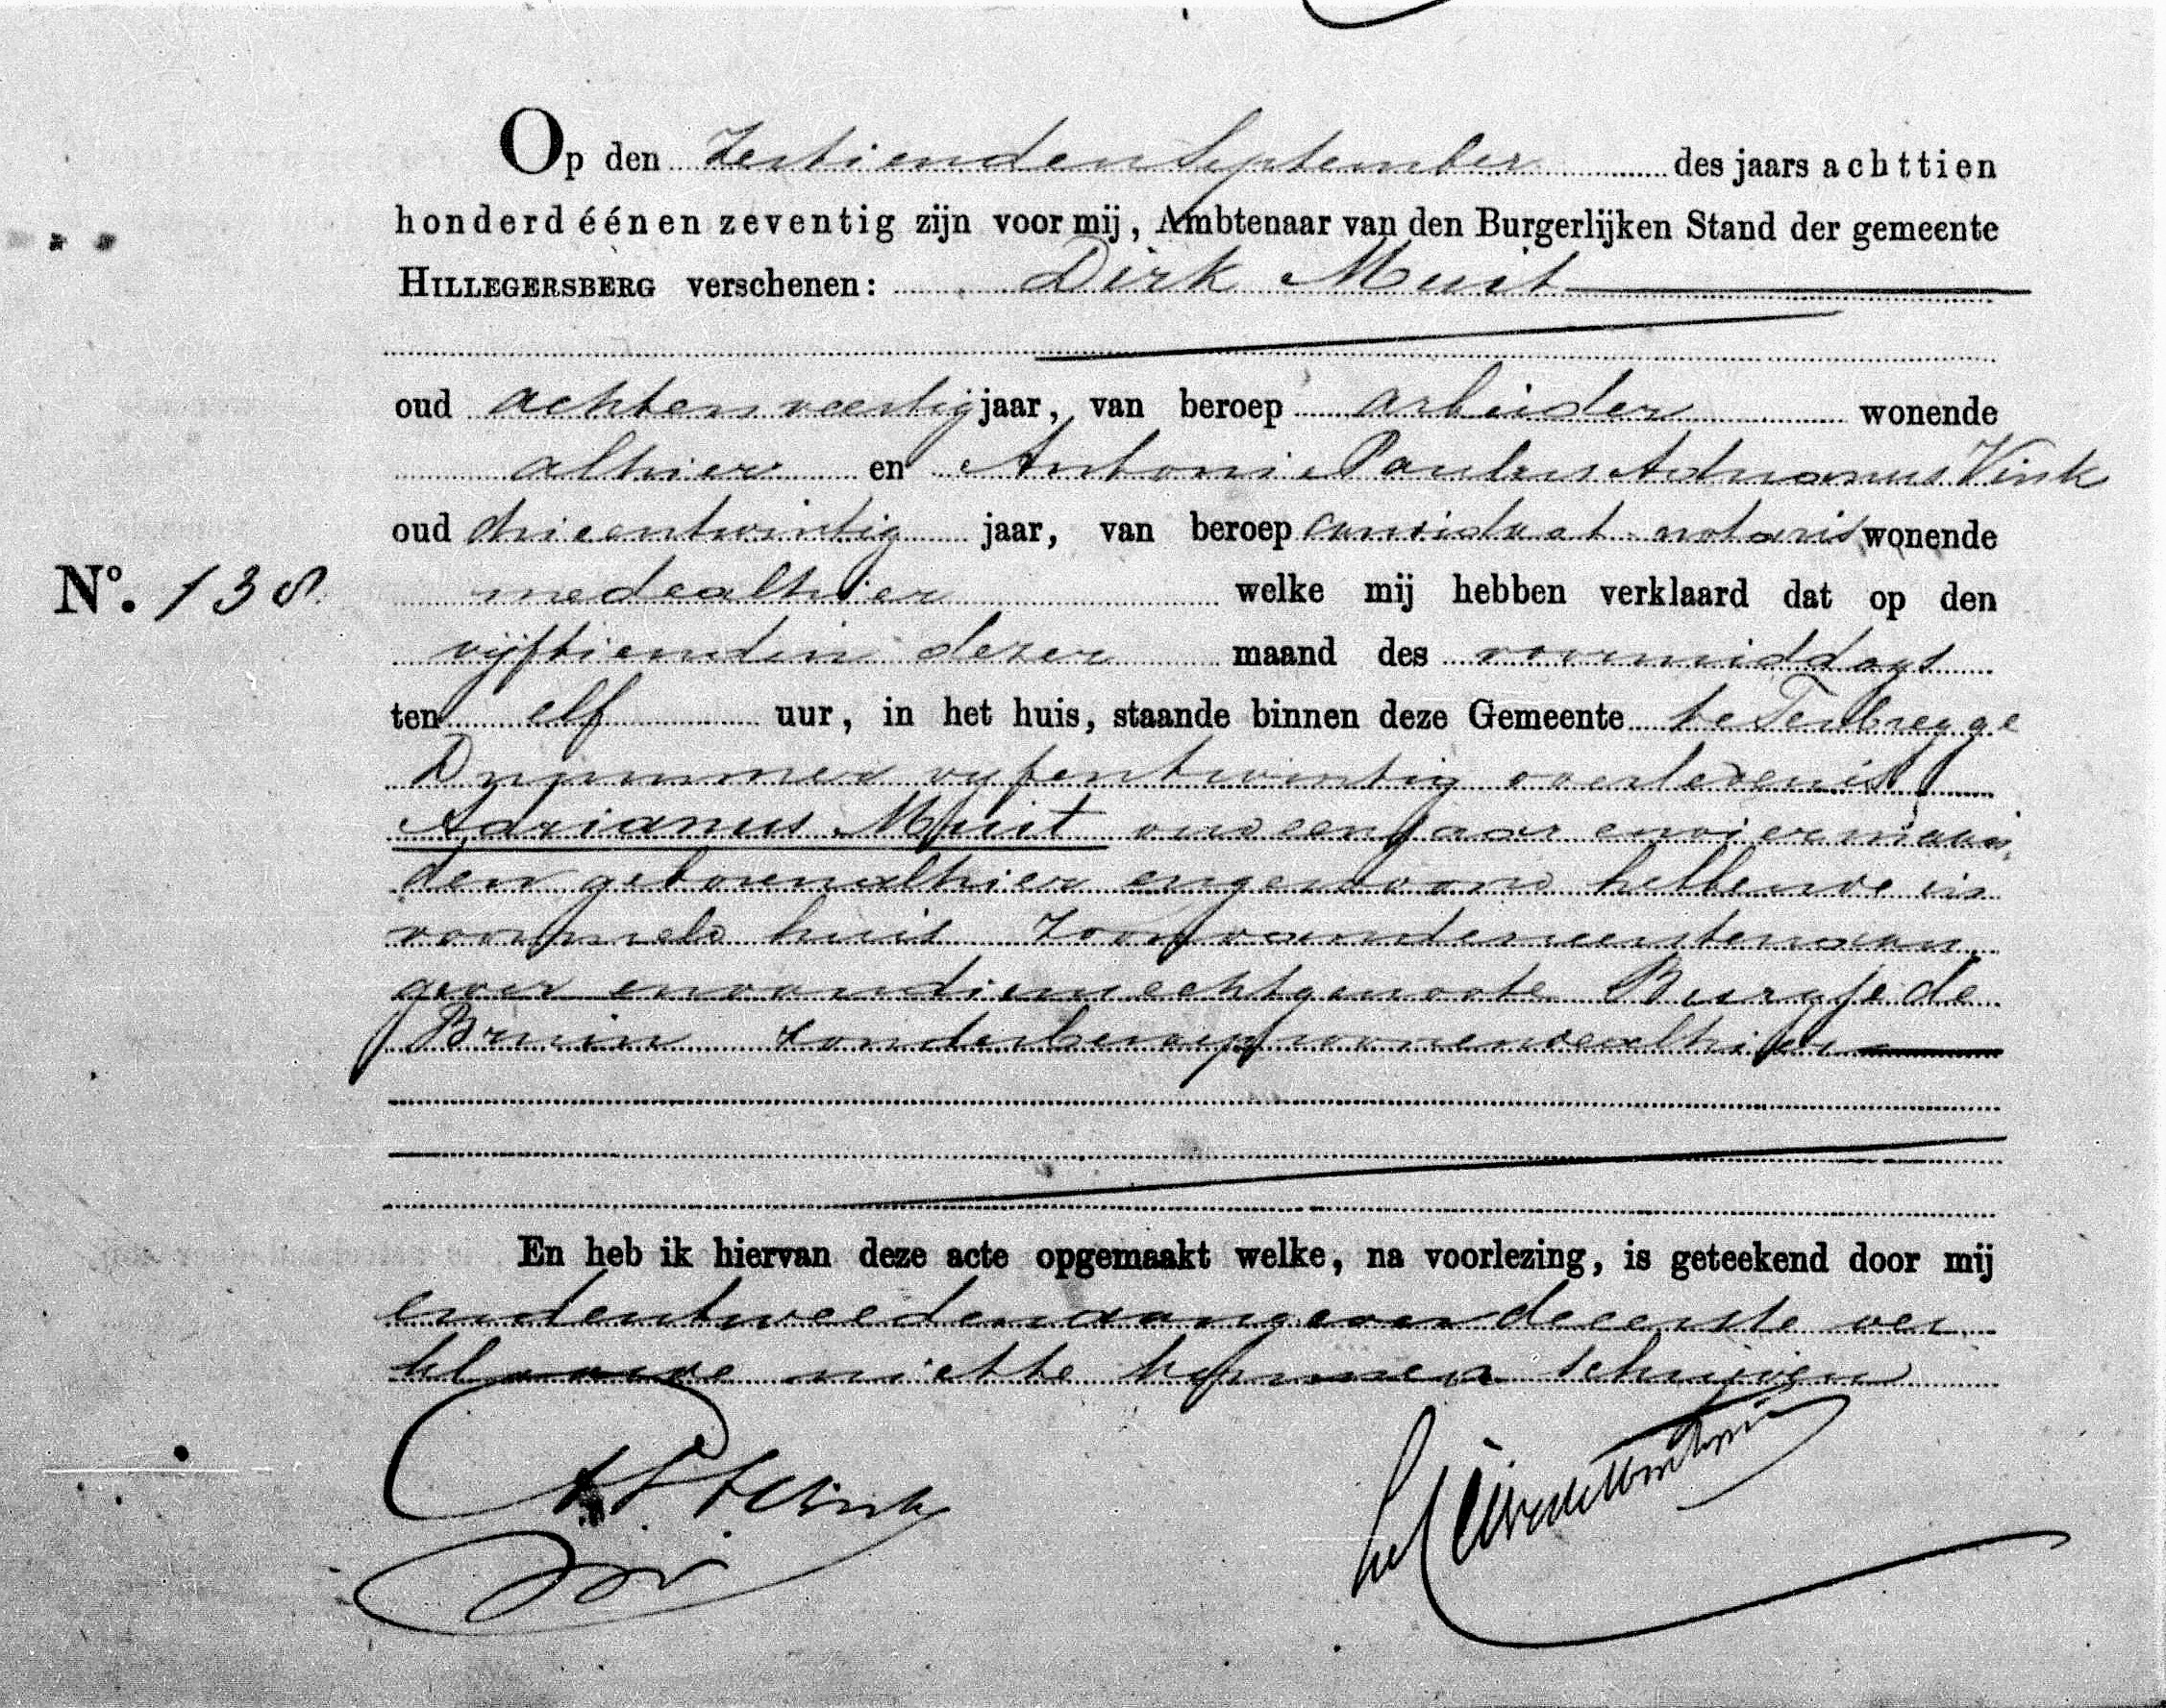 Op den Zestienden September des jaars achttien
honderd één en zeventig zijn voor mij, Ambtenaar van den Burgerlijken Stand der gemeente
HILLEGERSBERG verschenen: Dirk Muit
oud achtenveertig jaar, van beroep arbeider wonende
alhier en Antoni Paulus Adrianus Vink
oud drieentwintig jaar, van beroep candidaat-notaris wonende
No. 138
medealhier welke mij hebben verklaard dat op den
vijftienden dezer maand des voormiddags
ten elf uur, in het huis, staande binnen deze Gemeente te Terbregge
D nummer vyfentwintig overleden is
Adrianus Muit oud een jaar en vier maan
den geboren alhier en gewoond hebbende in
voormeld huis Zoon van den eersten aan
gever en van dien echtgenoote Burgje de
Bruin zonder beroep wonende alhier
En heb ik hiervan deze acte opgemaakt welke, na voorlezing, is geteekend door mij
en den tweeden aangever de eerste ver
klarende niet te kunnen schrijven
APAVink